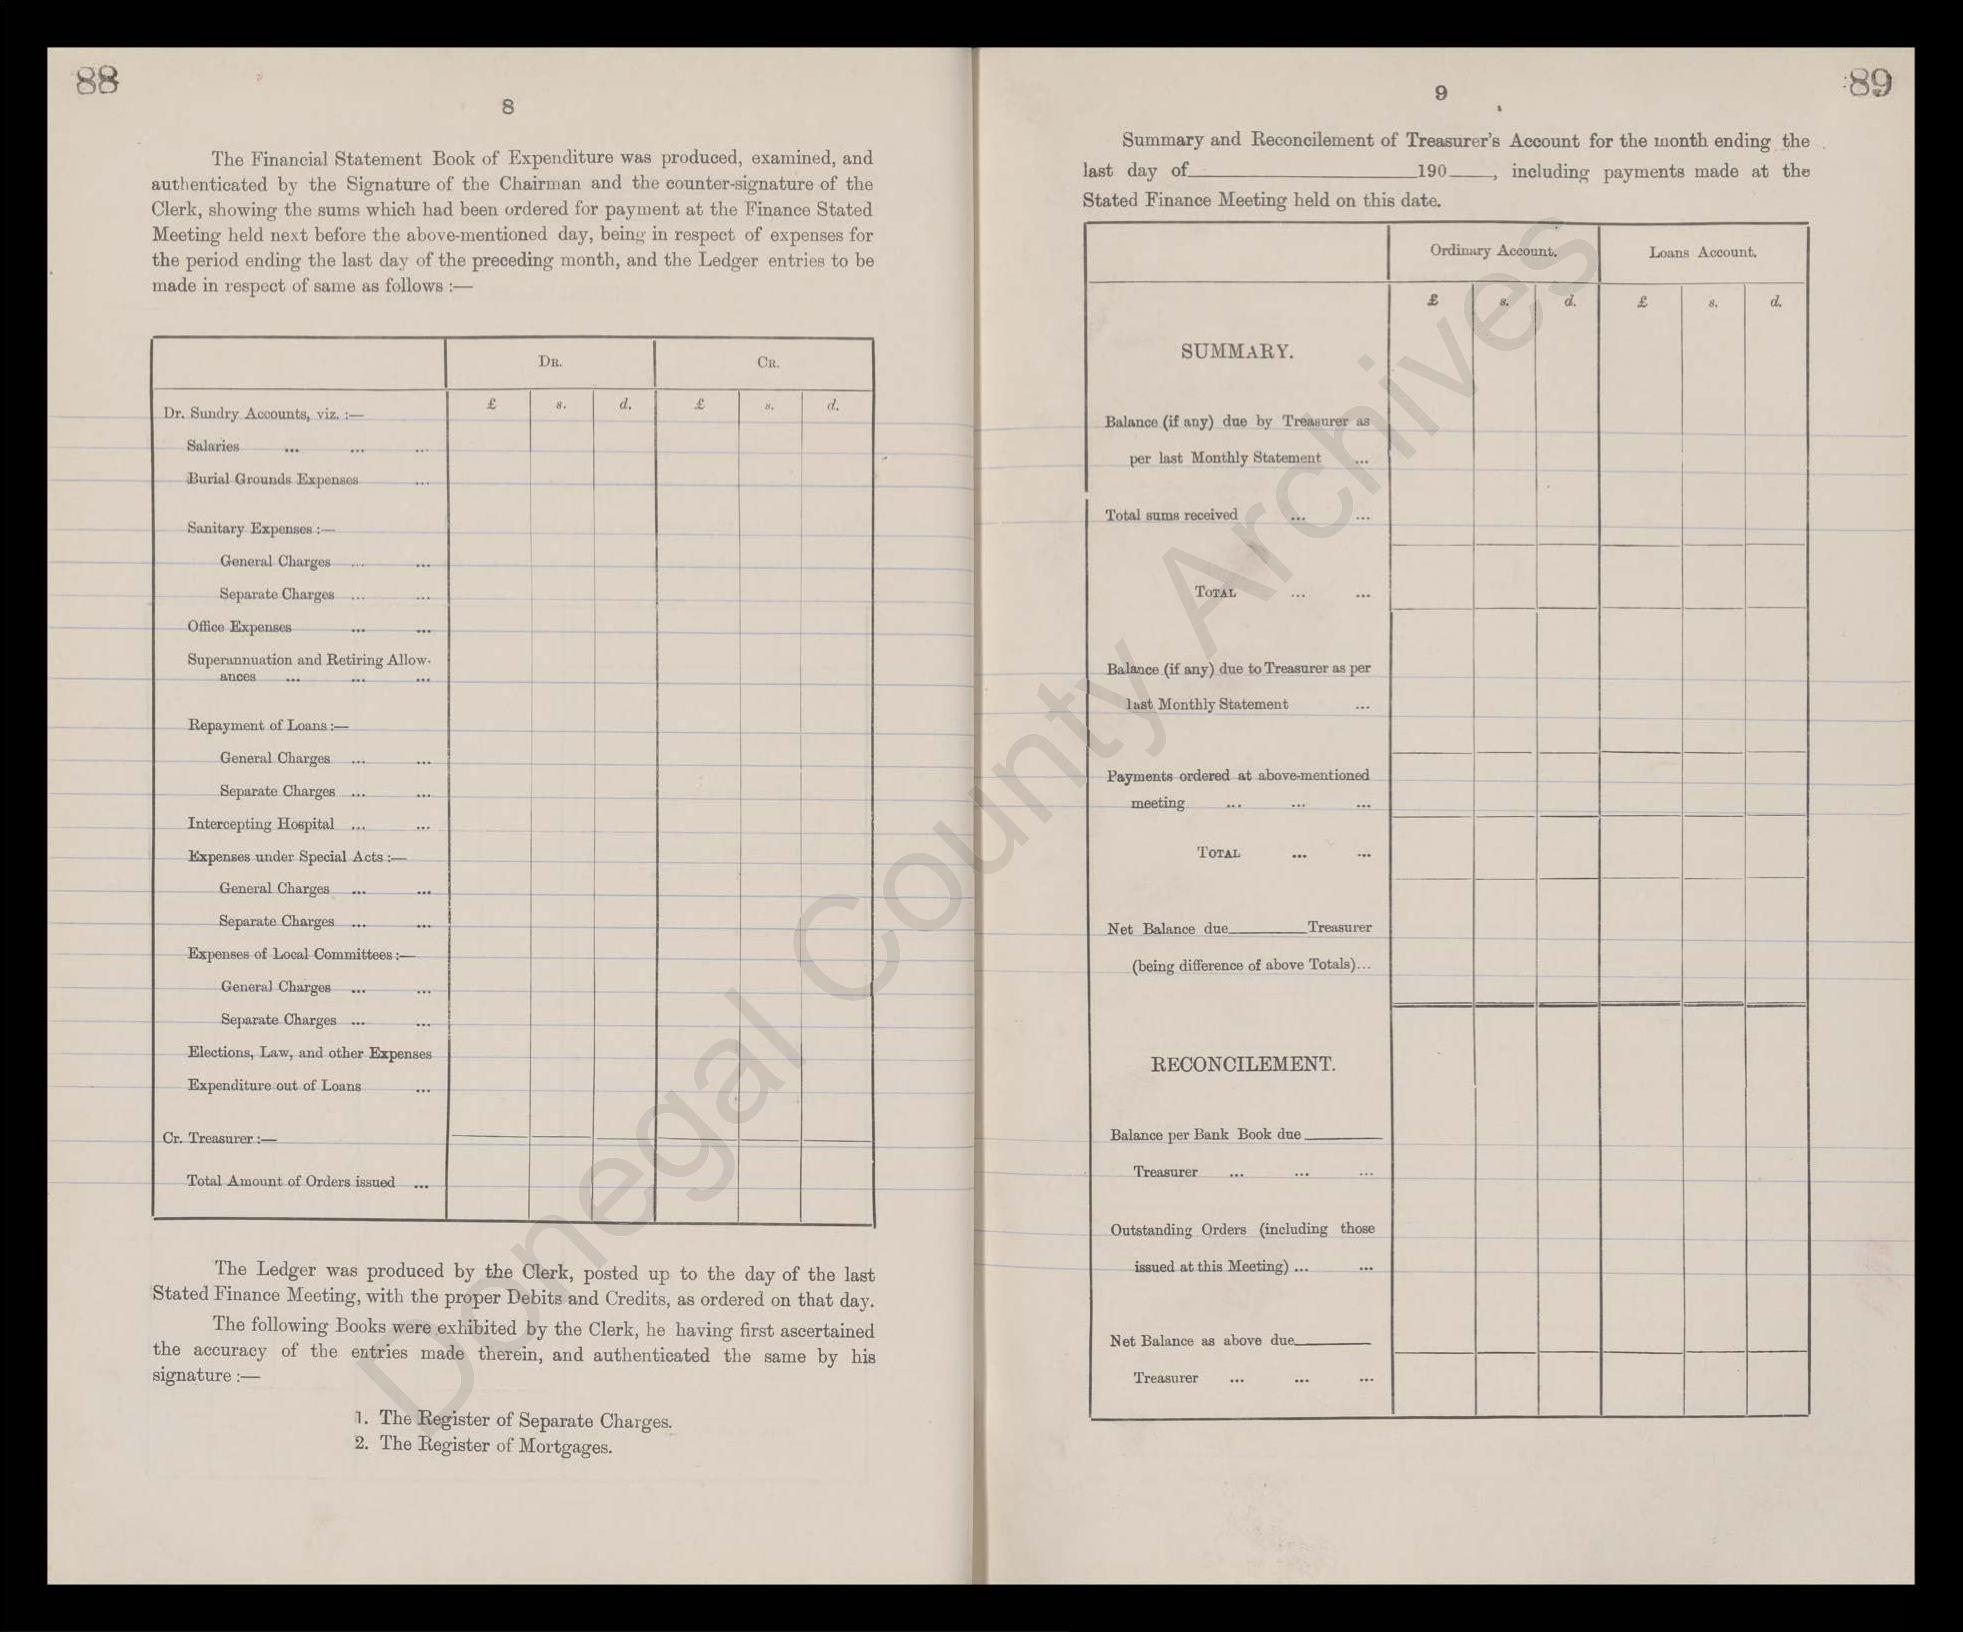 88
8
The Financial Statement Book of Expenditure was produced, examined, and
authenticated by the Signature of the Chairman and the counter-signature of the
Clerk, showing the sums which had been ordered for payment at the Finance Stated
Meeting held next before the above-mentioned day, being in respect of expenses for
the period ending the last day of the preceding month, and the Ledger entries to be
made in respect of same as follows :—
DR. CR.
£ s. d. £ s. d.
Dr. Sundry Accounts, viz. :—
Salaries ... ... ...
Burial Grounds Expenses ...
Sanitary Expenses :—
General Charges ... ...
Separate Charges ... ...
Office Expenses ... ...
Superannuation and Retiring Allow-
ances ... ... ...
Repayment of Loans :—
General Charges ... ...
Separate Charges ... ...
Intercepting Hospital ... ...
Expenses under Special Acts :—
General Charges ... ...
Separate Charges ... ...
Expenses of Local Committees :—
General Charges ... ...
Separate Charges ... ...
Elections, Law, and other Expenses
Expenditure out of Loans ...
Cr. Treasurer :—
Total Amount of Orders issued ...
The Ledger was produced by the Clerk, posted up to the day of the last
Stated Finance Meeting, with the proper Debits and Credits, as ordered on that day.
The following Books were exhibited by the Clerk, he having first ascertained
the accuracy of the entries made therein, and authenticated the same by his
signature :—
1. The Register of Separate Charges.
2. The Register of Mortgages.
89
9
Summary and Reconcilement of Treasurer's Account for the month ending the
last day of____________190____, including payments made at the
Stated Finance Meeting held on this date.
Ordinary Account. Loans Account.
£ s. d. £ s. d.
SUMMARY.
Balance (if any) due by Treasurer as
per last Monthly Statement ...
Total sums received ... ...
TOTAL ... ...
Balance (if any) due to Treasurer as per
last Monthly Statement ...
Payments ordered at above-mentioned
meeting ... ... ...
TOTAL ... ...
Net Balance due________Treasurer
(being difference of above Totals)...
RECONCILEMENT.
Balance per Bank Book due________
Treasurer ... ... ...
Outstanding Orders (including those
issued at this Meeting) ... ...
Net Balance as above due________
Treasurer ... ... ...
Donegal County Archives